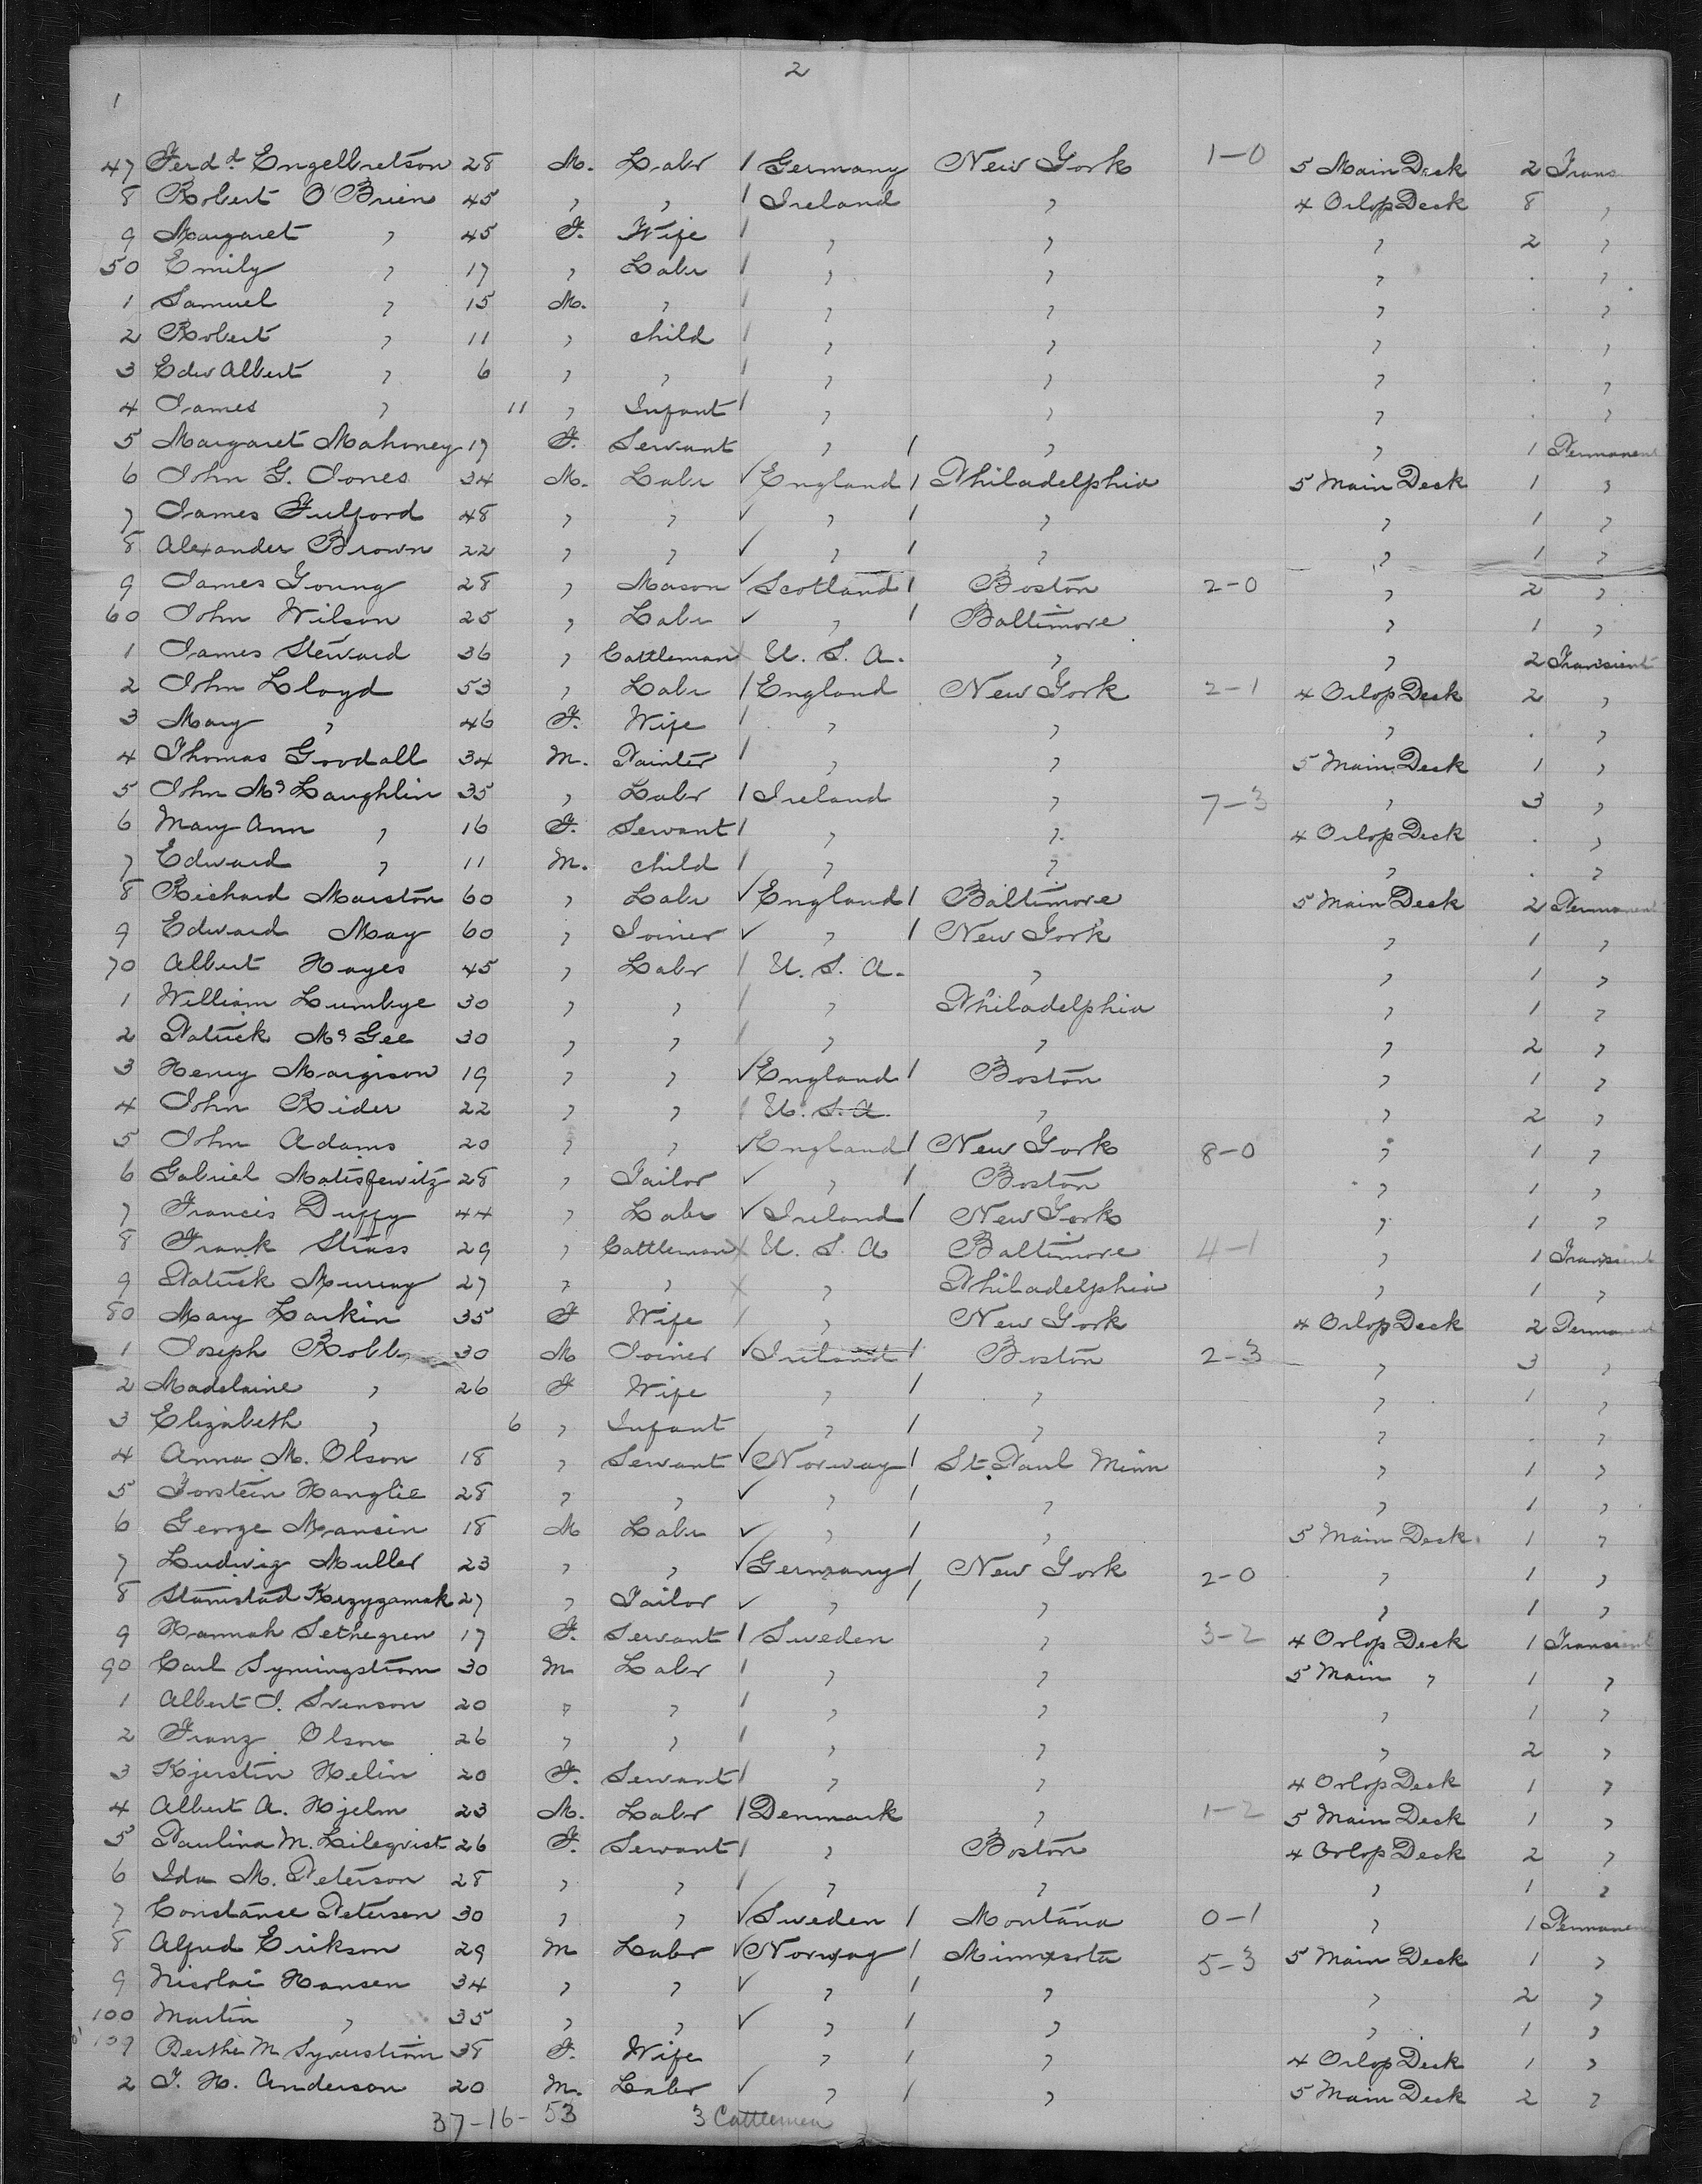 2
1
47 Ferd^d Engelbretson 28 M. Labr / Germany New York 1-0 5 Main Deck 2 Trans
8 Robert O'Brien 45 " " / Ireland " 4 Orlop Deck 8 "
9 Margaret " 45 F. Wife / " " " 2 "
50 Emily " 17 " Labr / " " " . "
1 Samuel " 15 M. " / " " " . "
2 Robert " 11 " child / " " " . "
3 Edw Albert " 6 " " / " " " . "
4 James " 11 " Infant / " " " . "
5 Margaret Mahoney 17 F. Servant " / " " 1 Permanent
6 John G. Jones 34 M. Labr ✓ England / Philadelphia 5 Main Deck 1 "
7 James Fulford 48 " " ✓ " / " " 1 "
8 Alexander Brown 22 " " ✓ " / " " 1 "
9 James Young 28 " Mason ✓ Scotland / Boston 2-0 " 2 "
60 John Wilson 25 " Labr ✓ " / Baltimore " 1 "
1 James Steward 36 " Cattleman X U. S. A. " " 2 Transient
2 John Lloyd 53 " Labr / England New York 2-1 4 Orlop Deck 2 "
3 Mary " 46 F. Wife / " " " . "
4 Thomas Goodall 34 M. Painter / " " 5 Main Deck 1 "
5 John McLaughlin 35 " Labr / Ireland " 7-3 " 3 "
6 Mary Ann " 16 F. Servant / " " 4 Orlop Deck . "
7 Edward " 11 M. child / " " " . "
8 Richard Marston 60 " Labr ✓ England / Baltimore 5 Main Deck 2 Permanent
9 Edward May 60 " Joiner ✓ " / New York " 1 "
70 Albert Hayes 45 " Labr / U. S. A. " " 1 "
1 William Lumbye 30 " " / " Philadelphia " 1 "
2 Patrick McGee 30 " " / " " " 2 "
3 Henry Margison 19 " " ✓ England / Boston " 1 "
4 John Rider 22 " " / U. S. A. " " 2 "
5 John Adams 20 " " ✓ England / New York 8-0 " 1 "
6 Gabriel 28 " Tailor ✓ " / Boston " 1 "
7 Francis Duffy 44 " Labr ✓ Ireland / New York " 1 "
8 Frank Strass 29 " Cattleman X U. S. A Baltimore 4-1 " 1 Transient
9 Patrick Murray 27 " " X " Philadelphia " 1 "
80 Mary Larkin 35 F Wife / " New York 4 Orlop Deck 2 Permanent
1 Joseph Robb 30 M Joiner ✓ Ireland / Boston 2-3 " 3 "
2 Madelaine " 26 F Wife " / " " 1 "
3 Elizabeth " 6 " Infant " / " " . "
4 Anna M. Olson 18 " Servant ✓ Norway / St. Paul Minn " 1 "
5 Torstein Hanglie 28 " " ✓ " / " " 1 "
6 George Mansin 18 M Labr ✓ " / " 5 Main Deck 1 "
7 Ludwig Muller 23 " " ✓ Germany / New York 2-0 " 1 "
8 27 " Tailor ✓ " / " " 1 "
9 Hannah Sethegren 17 F. Servant / Sweden " 3-2 4 Orlop Deck 1 Transient
90 Carl 30 M Labr / " " 5 Main " 1 "
1 Albert J. Svenson 20 " " / " " " 1 "
2 Franz Olson 26 " " / " " " 2 "
3 Kjerstin Helin 20 F. Servant / " " 4 Orlop Deck 1 "
4 Albert A. Hjelm 23 M. Labr / Denmark " 1-2 5 Main Deck 1 "
5 Paulina M. Lileqvist 26 F. Servant / " Boston 4 Orlop Deck 2 "
6 Ida M. Peterson 28 " " / " " " 1 "
7 Constance Petersen 30 " " ✓ Sweden / Montana 0-1 " 1 Permanent
8 Alfred Erikson 29 M Labr ✓ Norway / Minnesota 5-3 5 Main Deck 1 "
9 Nicolai Hansen 34 " " ✓ " / " " 2 "
100 Martin " 35 " " ✓ " / " " 1 "
Berthe M 38 F. Wife " / " 4 Orlop Deck 1 "
2 J. H. Anderson 20 M. Labr ✓ " / " 5 Main Deck 2 "
37-16-53 3 Cattlemen